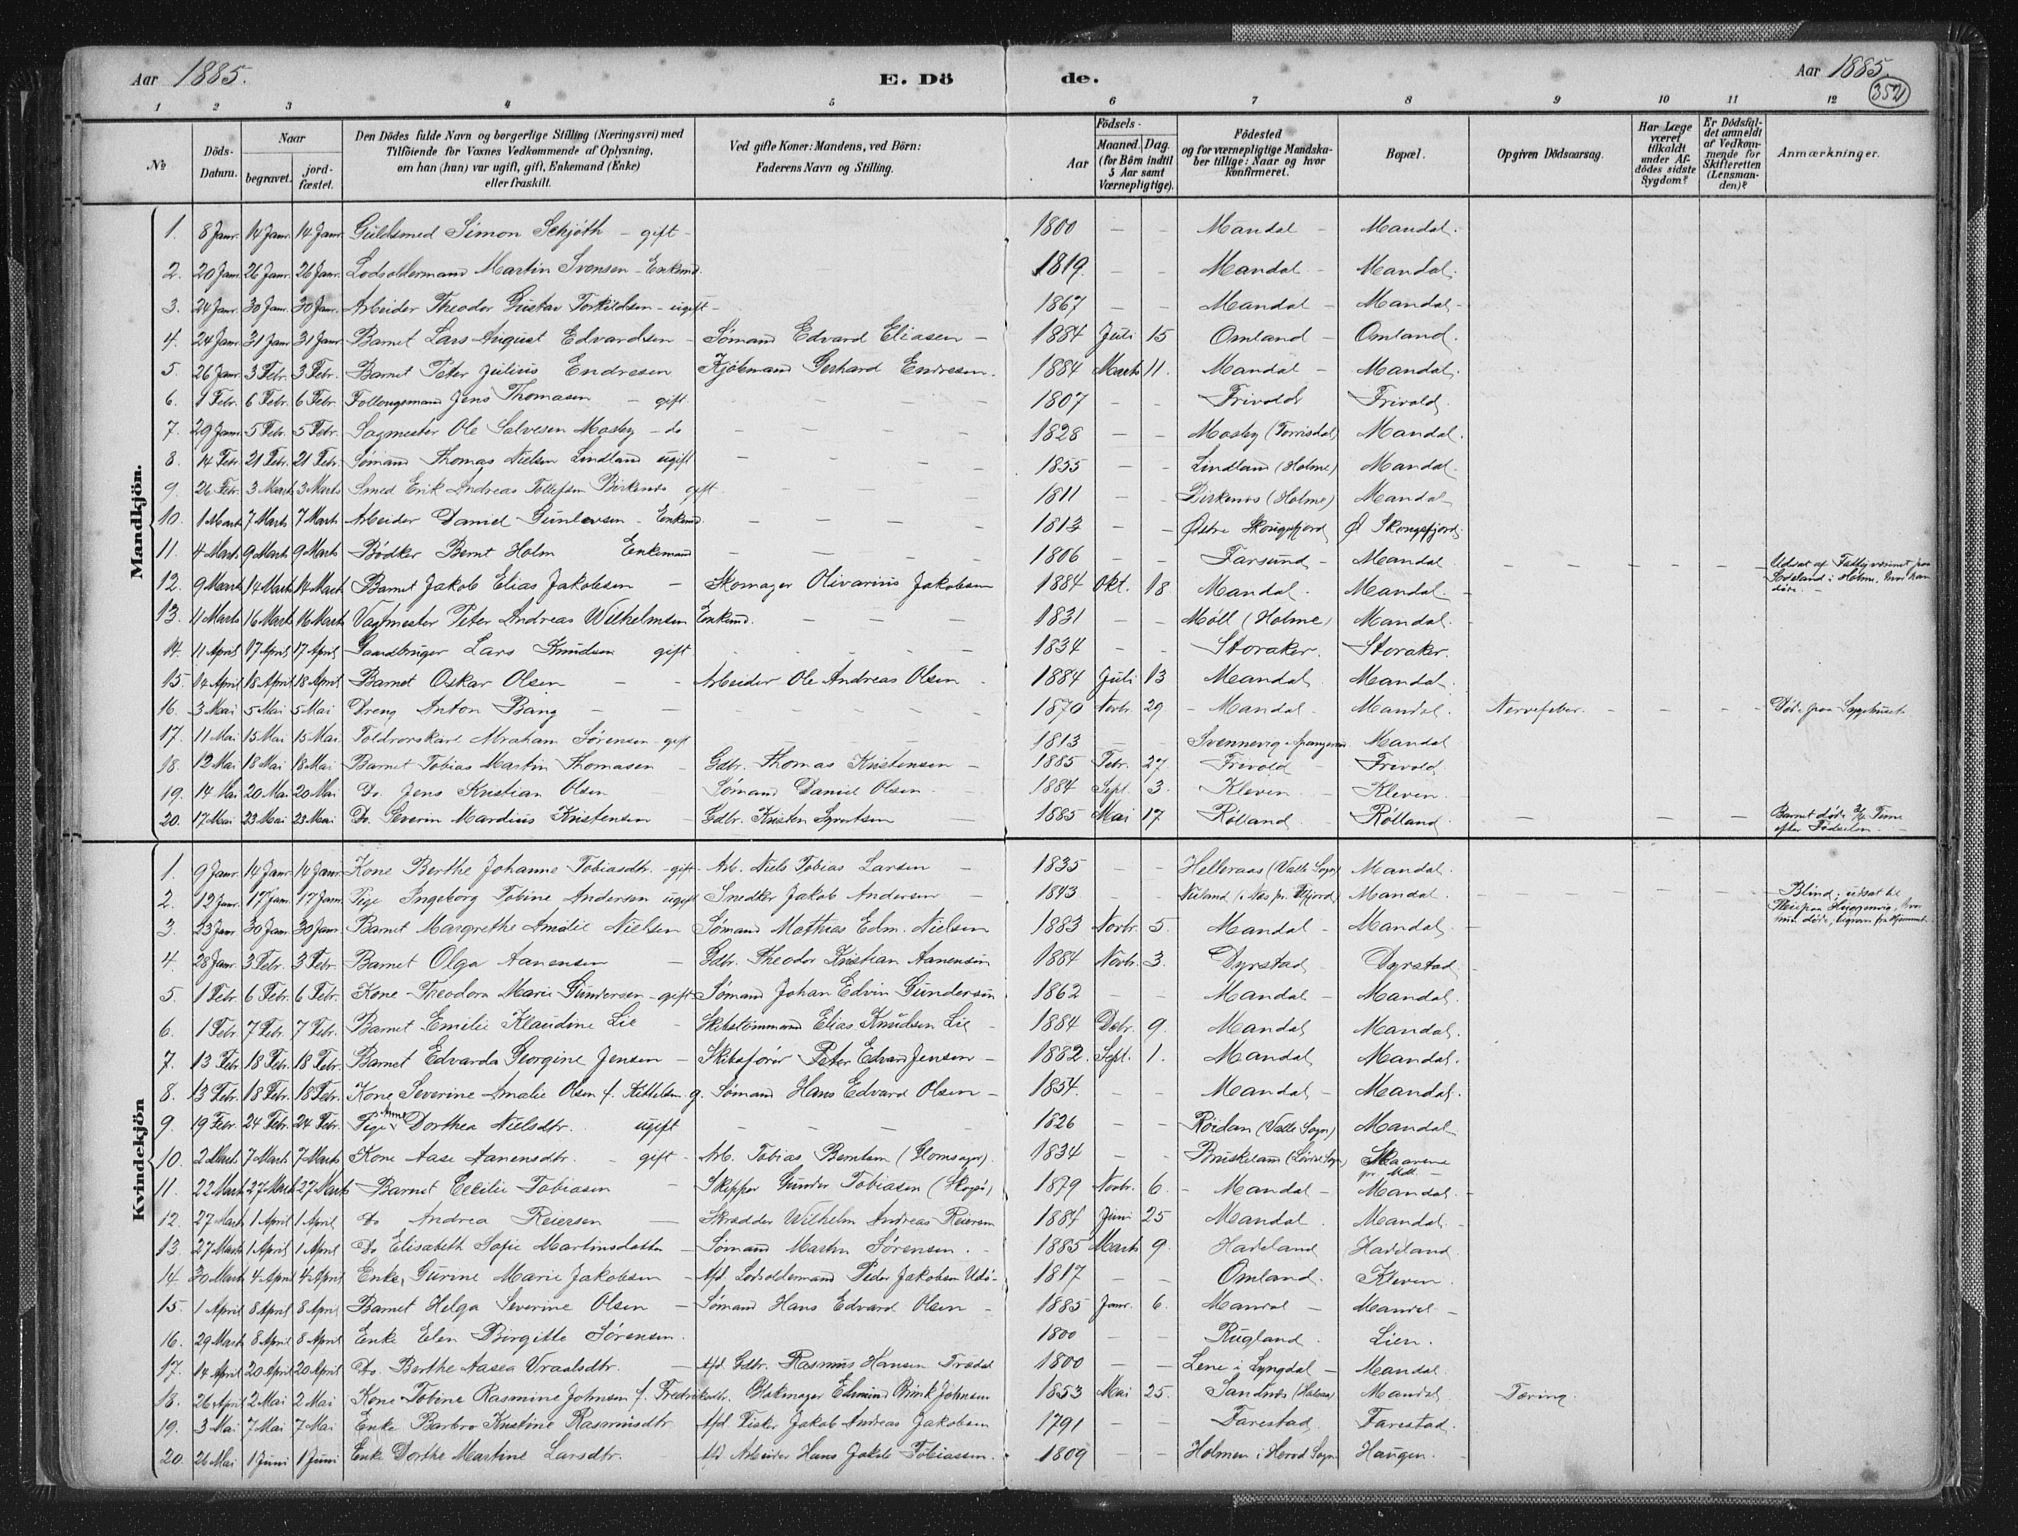 Aar 1885. E. Dö de. Aar 1885.
352
1 2 3 4 5 6 7 8 9 10 11 12
№ Döds-Datum. Naar begravet. jordfæstet. Den Dödes fulde Navn og borgerlige Stilling (Næringsvei) med Tilföiende for Voxnes Vedkommende af Oplysning, om han (hun) var ugift, gift, Enkemand (Enke) eller fraskilt. Ved gifte Koner: Mandens, ved Börn: Faderens Navn og Stilling. Födsels- Aar Maaned. Dag. (for Börn indtil 5 Aar samt Værnepligtige). Födested og for værnepligtige Mandskaber tillige: Naar og hvor konfirmeret. Bopæl. Opgiven Dödsaarsag. Har Læge været tilkaldt under Afdödes sidste Sygdom? Er Dödsfaldet anmeldt af Vedkommende for Skifteretten (Lensmanden)? Anmærkninger.
Mandkjön.
1. 8 Janr. 14 Janr. 14 Janr. Guldsmed Simon Schjöth - gift - 1800 - - Mandal - Mandal.
2. 20 Janr. 26 Janr. 26 Janr. Lodsoldermand Martin Svensen - Enkemd. 1819. - - Mandal - Mandal.
3. 24 Janr. 30 Janr. 30 Janr. Arbeider Theodor Gustav Torkildsen - ugift - 1867 - - Mandal - Mandal -
4. 24 Janr. 31 Janr. 31 Janr. Barnet Lars August Edvardsen - Sømand Edvard Eliasen - 1884 Juli 15 Omland - Omland.
5. 26 Janr. 3 Febr. 3 Febr. Barnet Peter Julius Endresen Kjøbmand Gerhard Endresen. 1884 Marts 11. Mandal - Mandal.
6. 1 Febr. 6 Febr. 6 Febr. Follaugsmand Jens Thomasen - gift. 1807 - - Frivold Frivold.
7. 29 Janr. 5 Febr. 5 Febr. Sagmester Ole Salvesen Mosby - do - - - - 1828 - - Mosby (Torrisdal) Mandal.
8. 14 Febr. 21 Febr. 21 Febr. Sømand Thomas Nielsen Lindland ugift - - - - 1855 - - Lindland (Holme) Mandal.
9. 26 Febr. 3 Marts 3 Marts Smed Erik Andreas Tollefsen Birkenes gift - - - - 1811 - - Birkenes (Holme) Mandal
10. 1 Marts 7 Marts 7 Marts Arbeider Daniel Gunlevsen - Enkemd. - - - - 1813 - - Østre Skougsfjord Ø Skougsfjord
11. 4 Marts 9 Marts 9 Marts Bødker Bernt Holm Enkemand - - - - 1806 - - Farsund - Mandal - - - - Udsat af Fattigvæsenet paa
12. 9 Marts 14 Marts 14 Marts Barnet Jakob Elias Jakobsen - Skomager Olivarius Jakobsen 1884 Okt. 18 Mandal. Mandal. i Holme, hvor han døde.
13. 11 Marts 16 Marts 16 Marts Vagtmester Peter Andreas Wilhelmsen Enkemd. - - - 1831 - - Møll (Holme) Mandal.
14. 11 April 17 April 17 April Gaardbruger Lars Knudsen gift - - - 1834 - - Storaker. Storaker.
15. 14 April 18 April 18 April Barnet Oskar Olsen - - Arbeider Ole Andreas Olsen. 1884 Juli 13 Mandal. Mandal.
16. 3 Mai 5 Mai 5 Mai Dreng Anton Bang - - - - - 1870 Novbr. 29 - Mandal. Mandal. Nervefeber. - - - Døde paa Sygehuset
17. 11 Mai 15 Mai 15 Mai Toldrorskarl Abraham Sørensen - gift - - - - 1813 - - Svennevig i Mandal
18. 12 Mai 18 Mai 18 Mai Barnet Tobias Martin Thomasen - Gdbr. Thomas Kristensen - 1885 Febr. 27 Frivold - Frivold.
19. 14 Mai 20 Mai 20 Mai Do Jens Kristian Olsen - Sømand Daniel Olsen 1884 Sept. 3. Kleven - Kleven.
20. 17 Mai 23 Mai 23 Mai Do Severin Mardius Kristensen - Gdbr. Kristen Syvertsen 1885 Mai 17 Rølland. Rølland. - - - Barnet døde 3/4 Time efter Fødselen. -
Kvindekjön
1. 9 Janr. 14 Janr. 14 Janr. Kone Berthe Johanne Tobiasdtr. - gift - Arb. Niels Tobias Larsen - 1835 - - Helleraas (Valle Sogn) Mandal.
2. 12 Janr. 17 Janr. 17 Janr. Pige Ingeborg Tobine Andersen ugift Snedker Jakob Andersen - 1843 - - Mandal. - - - - Blind, udsat til
3. 23 Janr 30 Janr. 30 Janr. Barnet Margrethe Amalie Nielsen Sømand Mathias Edm. Nielsen 1883 Novbr. 5. Mandal - Mandal. hvor hun døde,
4. 28 Janr. 3 Febr. 3 Febr. Barnet Olga Aanensen - Gdbr. Theodor Kristian Aanensen 1884 Novbr. 3. Dyrstad - Dyrstad
5. 1 Febr. 6 Febr. 6 Febr. Kone Theodora Marie Gundersen - gift Sømand Johan Edvin Gundersen 1862 - - Mandal - Mandal.
6. 1 Febr. 7 Febr. 7 Febr. Barnet Emilie Klaudine Lie - Skibstømmermd Elias Knudsen Lie - 1884 Debr. 9. Mandal Mandal.
7. 13 Febr 18 Febr. 18 Febr. Barnet Edvarda Georgine Jensen - Skibsfører Peter Edvard Jensen - 1882. Sept. 1. Mandal Mandal.
8. 13 Febr. 18 Febr. 18 Febr. Kone Severine Amalie Olsen f. Kittelsen g. Sømand Hans Edvard Olsen - 1854. - - Mandal - Mandal.
9. 19 Febr. 24 Febr. 24 Febr. Pige Anne Dorthea Nielsdtr. ugift - - - - 1826 - - Røidan (Valle Sogn) Mandal
10. 2 Marts 7 Marts 7 Marts Kone Aase Aanensdtr. - gift - Arb. Tobias Berntsen 1834 - - Skaarene pr. Mdl.
11. 22 Marts 27 Marts 27 Marts Barnet Cecilie Tobiasen - Skipper Gunder Tobiasen 1879 Novbr. 6. - Mandal - Mandal.
12. 27 Marts 1 April 1 April Do Andrea Reiersen - Skrædder Wilhelm Andreas Reiersen 1884 Juni 25 Mandal. Mandal
13. 27 Marts 1 April 1 April Do Elisabeth Sofie Martinsdatter - Sømand Martin Sørensen. - 1885 Marts 9. Hadeland Hadeland.
14 30 Marts 4 April 4 April Enke, Gurine Marie Jakobsen - Afd. Lodsoldermand Peder Jakobsen Udø - 1817 - - Omland. Kleven.
15. 1 April 8 April 8 April Barnet Helga Severine Olsen - Sømand Hans Edvard Olsen - 1885 Janr. 6. Mandal - Mandal -
16. 29 Marts 8 April 8 April Enke Elen Birgitte Sørensen. 1800 - - Rugland. Lien.
17. 14 April 20 April 20 April Do. Berthe Aasea Vraalsdtr. - Afd. Gdbr. Rasmus Hansen 1800 - - Lene i Lyngdal - Mandal.
18. 26 April 2 Mai 2 Mai Kone Tobine Rasmine Johnsen f. Fredriksdtr. Blokmager Edmund Brink Johnsen 1853 Mai 25. Sandnes Mandal Tæring
19. 3 Mai 7 Mai 7 Mai Enke Barbro Kristine Rasmusdtr. Afd. Fisker Jakob Andreas Jakobsen 1791 - - Farestad. Farestad.
20. 26 Mai 1 Juni 1 Juni Enke Dorthe Martine Larsdtr. Afd. Arbeider Hans Jakob Tobiassen. 1809 - - Holmen i Sogn Haugen.